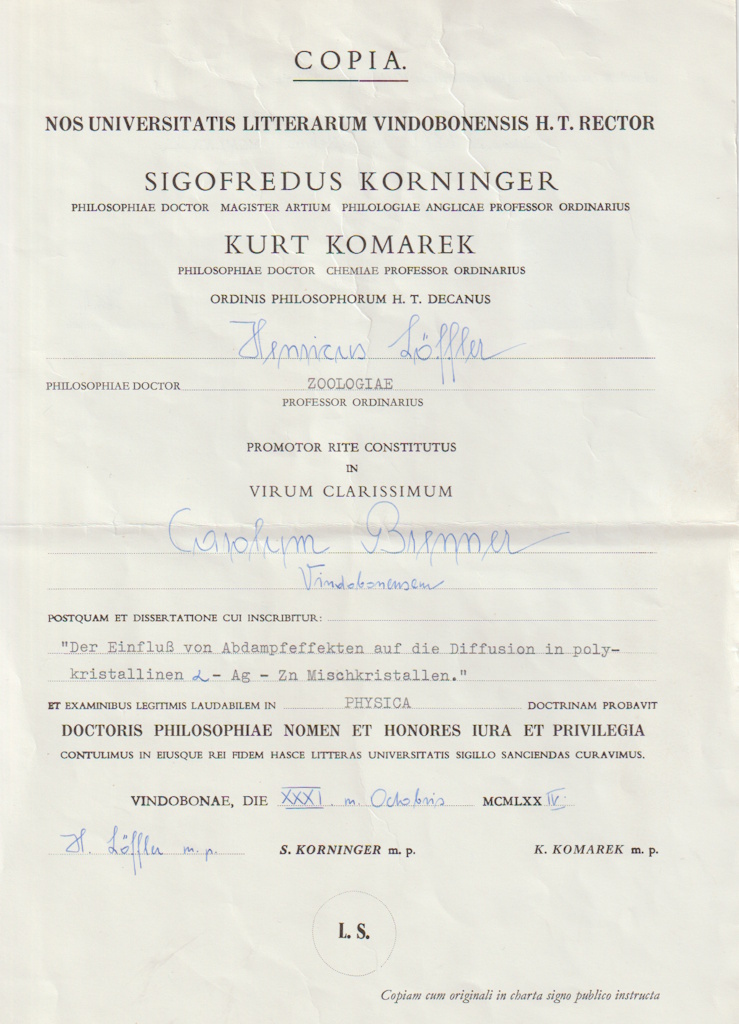 COPIA.
NOS UNIVERSITATIS LITTERARUM VINDOBONENSIS H. T. RECTOR
SIGOFREDUS KORNINGER
PHILOSOPHIAE DOCTOR MAGISTER ARTIUM PHILOLOGIAE ANGLICAE PROFESSOR ORDINARIUS
KURT KOMAREK
PHILOSOPHIAE DOCTOR CHEMIAE PROFESSOR ORDINARIUS
ORDINIS PHILOSOPHORUM H. T. DECANUS
Henricus Löffler
PHILOSOPHIAE DOCTOR ZOOLOGIAE
PROFESSOR ORDINARIUS
PROMOTOR RITE CONSTITUTUS
IN
VIRUM CLARISSIMUM
Carolum Brenner
Vindobonensem
POSTQUAM ET DISSERTATIONE CUI INSCRIBITUR:
"Der Einfluß von Abdampfeffekten auf die Diffusion in poly-
kristallinen α - Ag - Zn Mischkristallen."
ET EXAMINIBUS LEGITIMIS LAUDABILEM IN PHYSICA DOCTRINAM PROBAVIT
DOCTORIS PHILOSOPHIAE NOMEN ET HONORES IURA ET PRIVILEGIA
CONTULIMUS IN EIUSQUE REI FIDEM HASCE LITTERAS UNIVERSITATIS SIGILLO SANCIENDAS CURAVIMUS.
VINDOBONAE, DIE XXXI. m. Octobris MCMLXXIV.
H. Löffler m. p. S. KORNINGER m. p. K. KOMAREK m. p.
L. S.
Copiam cum originali in charta signo publico instructa